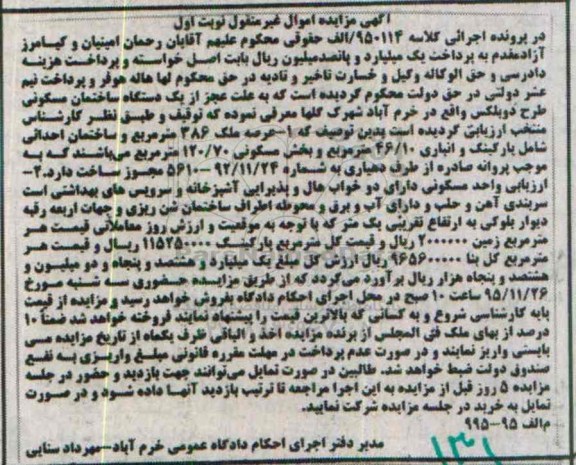 آگهی مزایده اموال غیرمنقول نوبت اول
در پرونده اجرائی کلاسه ۱۱۴-۹۵/الف حقوقی محکوم علیهم آقایان رحمان امینیان و کیامرز
آزادمقدم به پرداخت یک میلیارد و پانصدمیلیون ریال بابت اصل خواسته و پرداخت هزینه
دادرسی و حق الوکاله وکیل و خسارت تاخیر و تادیه در حق محکوم لها هاله هوفر و پرداخت نیم
عشر دولتی در حق دولت محکوم گردیده است که به علت عجز از یک دستگاه ساختمان مسکونی
طرح دوبلکس واقع در خرم آباد شهرک گلها معرفی نموده که توقیف و طبق نظر کارشناس
منتخب ارزیابی گردیده است بدین توصیف که ۱-عرصه ملک ۳۸۶ مترمربع و ساختمان احداثی
شامل پارکینگ و انباری ۴۶/۱۰ مترمربع و بخش مسکونی ۱۲۰/۷۰ مترمربع می‌باشند که به
موجب پروانه صادره از طرف دهیاری به شماره ۹۲/۱۱/۲۴-۵۶۱۰ مجوز ساخت دارد.۲-
ارزیابی واحد مسکونی دارای دو خواب هال و پذیرایی آشپزخانه و سرویس های بهداشتی است
سربندی آهن و حلب و دارای آب و برق و محوطه اطراف ساختمان شن ریزی و جهات اربعه رقبه
دیوار بلوکی به ارتفاع تقریبی یک متر که با توجه به موقعیت و ارزش روز معاملاتی قیمت هر
مترمربع زمین ۲۰۰۰۰۰۰ ریال و قیمت کل مترمربع پارکینگ ۱۱۵۲۵۰۰۰۰ ریال و قیمت هر
مترمربع کل بنا ۹۶۵۶۰۰۰۰۰ ریال ارزش کل مبلغ یک میلیارد و هشتصد و پنجاه و دو میلیون و
هشتصد و پنجاه هزار ریال برآورد می‌گردد که از طریق مزایده حضوری سه شنبه مورخ
۹۵/۱۱/۲۶ ساعت ۱۰ صبح در محل اجرای احکام دادگاه بفروش خواهد رسید و مزایده از قیمت
پایه کارشناسی شروع و به کسانی که بالاترین قیمت را پیشنهاد نمایند فروخته خواهد شد ضمنا ۱۰
درصد از بهای ملک فی المجلس از برنده مزایده اخذ و الباقی ظرف یکماه از تاریخ مزایده می
بایستی واریز نمایند و در صورت عدم پرداخت در مهلت مقرره قانونی مبلغ واریزی به نفع
صندوق دولت ضبط خواهد شد. طالبین در صورت تمایل می‌توانند جهت بازدید و حضور در جلسه
مزایده ۵ روز قبل از مزایده به این اجرا مراجعه تا ترتیب بازدید آنها داده شود و در صورت
تمایل به خرید در جلسه مزایده شرکت نمایید.
م‌الف ۹۵-۹۹۵
مدیر دفتر اجرای احکام دادگاه عمومی خرم آباد-مهرداد سنایی
۱۳۱